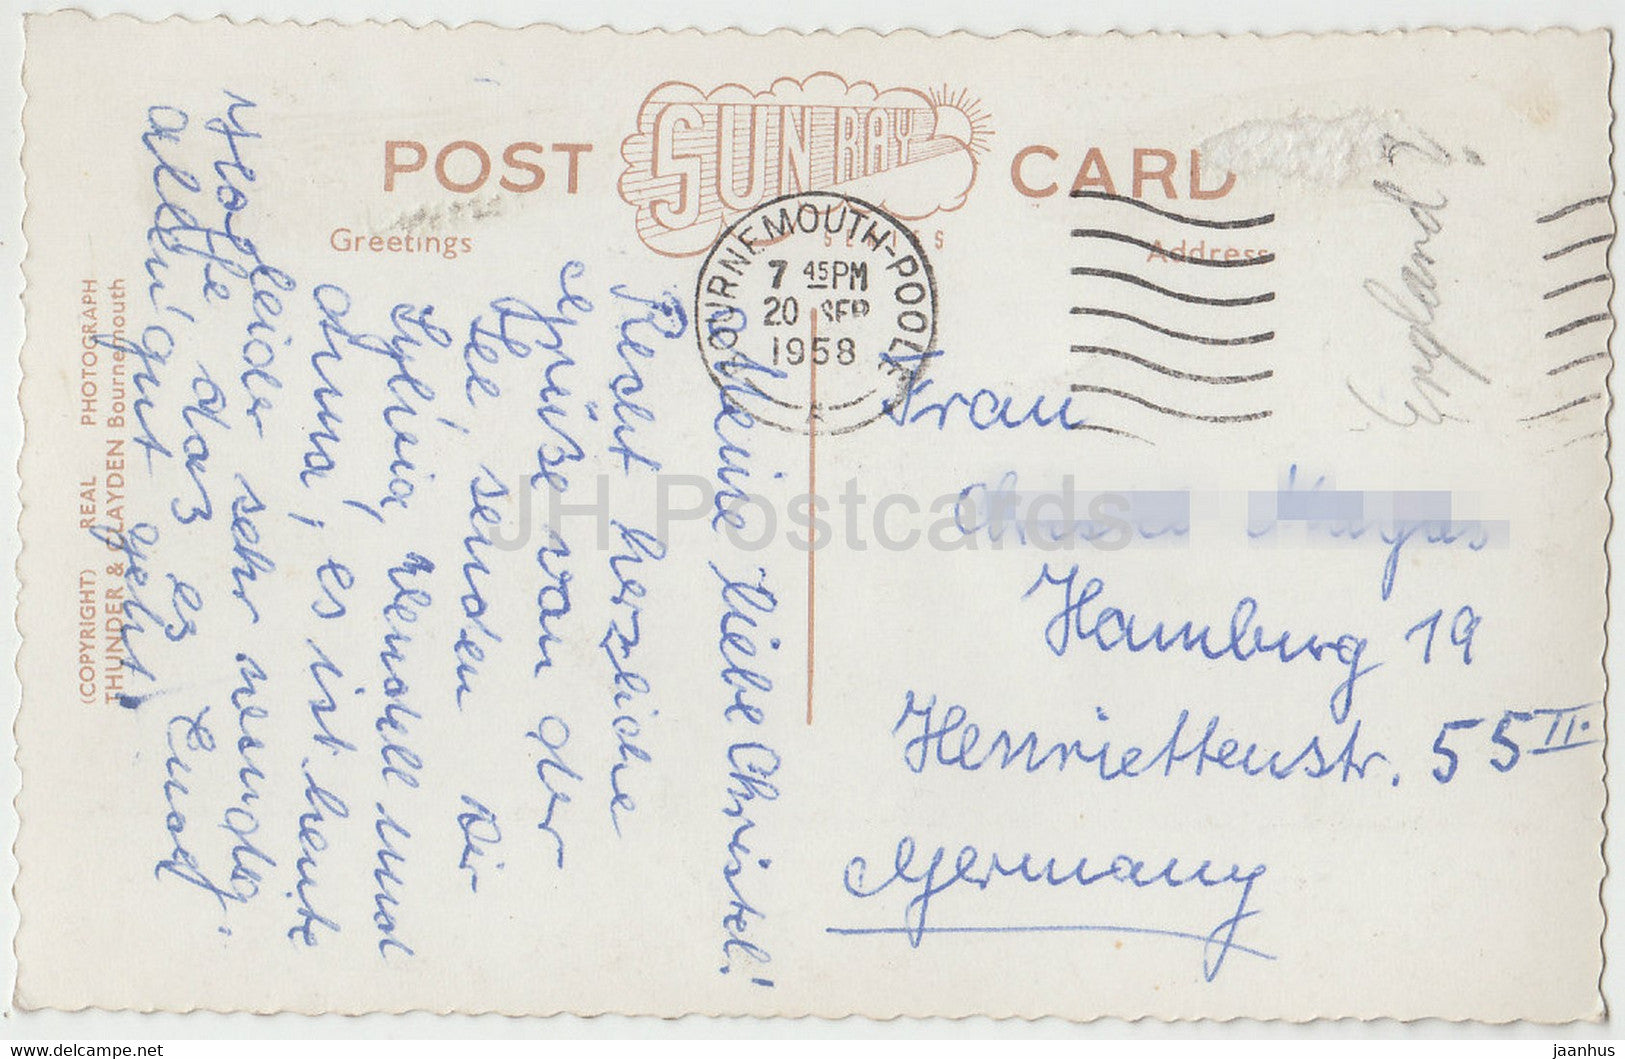 POST
SUNRAY
SERIES
CARD
Greetings
Address
BOURNEMOUTH-POOLE
7 45PM
20 SEP
1958
England
(COPYRIGHT) REAL PHOTOGRAPH
THUNDER & CLAYDEN Bournemouth
Meine liebe Christel!
Recht herzliche
Grüße von der
See, senden Dir
Sylvia, Wendell und
Anna, es ist heute
leider sehr windig.
Hoffe daß es Euch
allen gut geht!
Frau
Hamburg 19
Henriettenstr. 55 II.
Germany
JH Postcards
www.delcampe.net
jaanhus